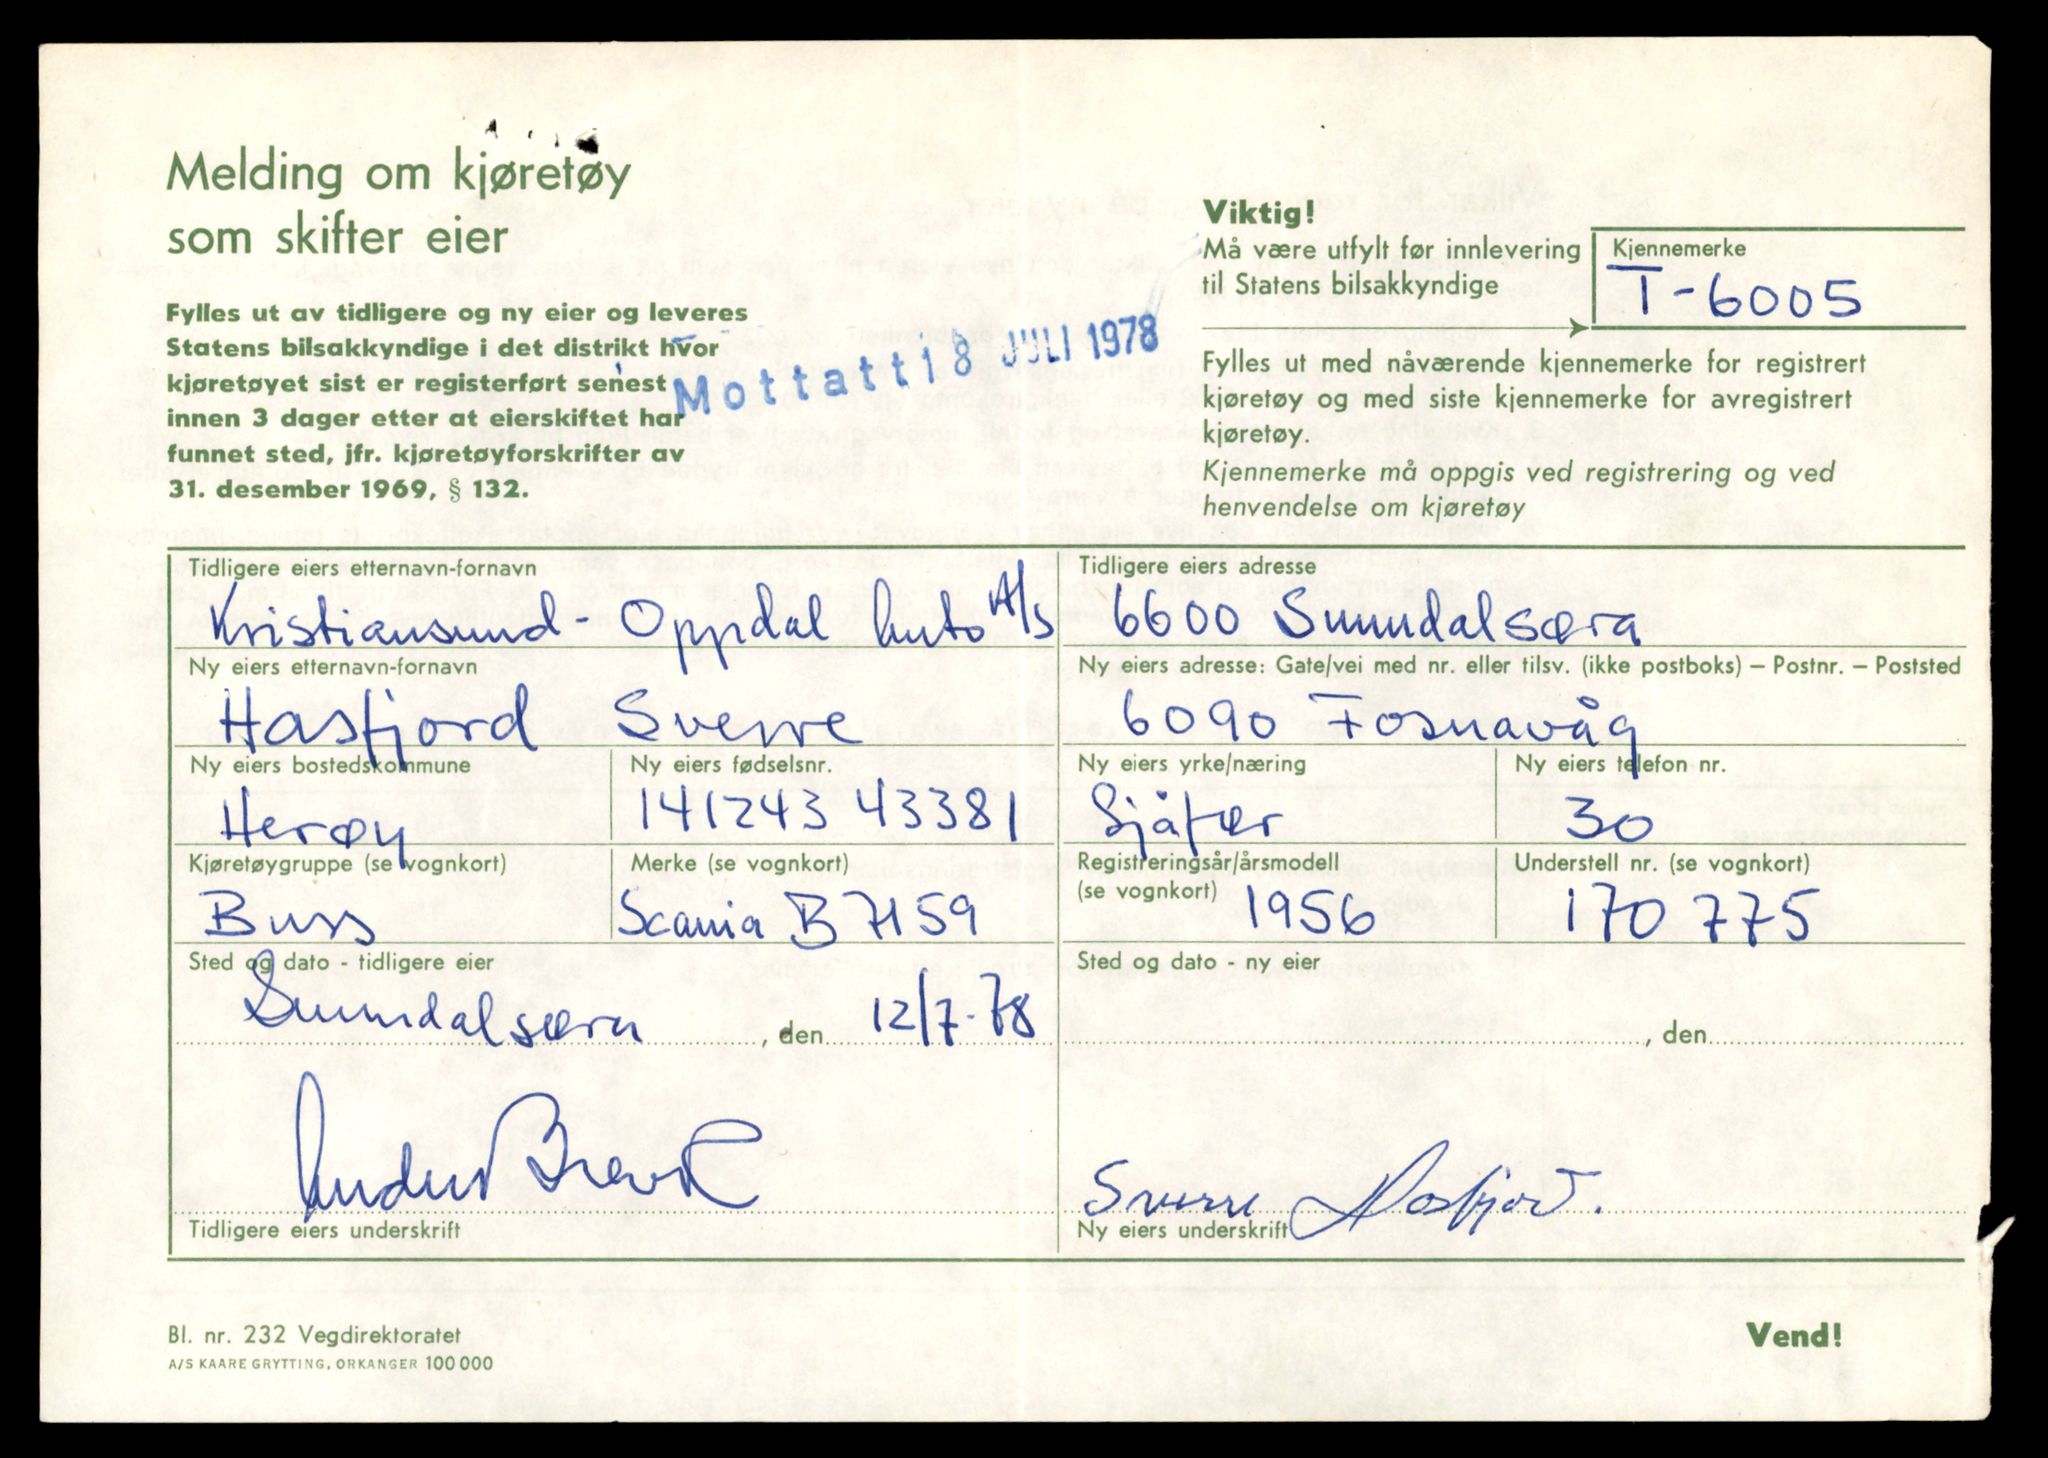 Melding om kjøretøy
som skifter eier
Fylles ut av tidligere og ny eier og leveres
Statens bilsakkyndige i det distrikt hvor
kjøretøyet sist er registerført senest
innen 3 dager etter at eierskiftet har
funnet sted, jfr. kjøretøyforskrifter av
31. desember 1969, § 132.
Mottatt 18 JULI 1978
Viktig!
Må være utfylt før innlevering
til Statens bilsakkyndige
Kjennemerke
T-6005
Fylles ut med nåværende kjennemerke for registrert
kjøretøy og med siste kjennemerke for avregistrert
kjøretøy.
Kjennemerke må oppgis ved registrering og ved
henvendelse om kjøretøy
Tidligere eiers etternavn-fornavn
Kristiansund-Oppdal Auto A/S
Tidligere eiers adresse
6600 Sunndalsøra
Ny eiers etternavn-fornavn
Hasfjord Sverre
Ny eiers adresse: Gate/vei med nr. eller tilsv. (ikke postboks) – Postnr. – Poststed
6090 Fosnavåg
Ny eiers bostedskommune
Herøy
Ny eiers fødselsnr.
141243 43381
Ny eiers yrke/næring
Sjåfør
Ny eiers telefon nr.
30
Kjøretøygruppe (se vognkort)
Buss
Merke (se vognkort)
Scania B 7159
Registreringsår/årsmodell
(se vognkort) 1956
Understell nr. (se vognkort)
170 775
Sted og dato - tidligere eier
Sunndalsøra, den 12/7-78
Sted og dato - ny eier
, den
Tidligere eiers underskrift
Sverre Hasfjord.
Ny eiers underskrift
Bl. nr. 232 Vegdirektoratet
A/S KAARE GRYTTING, ORKANGER 100 000
Vend!